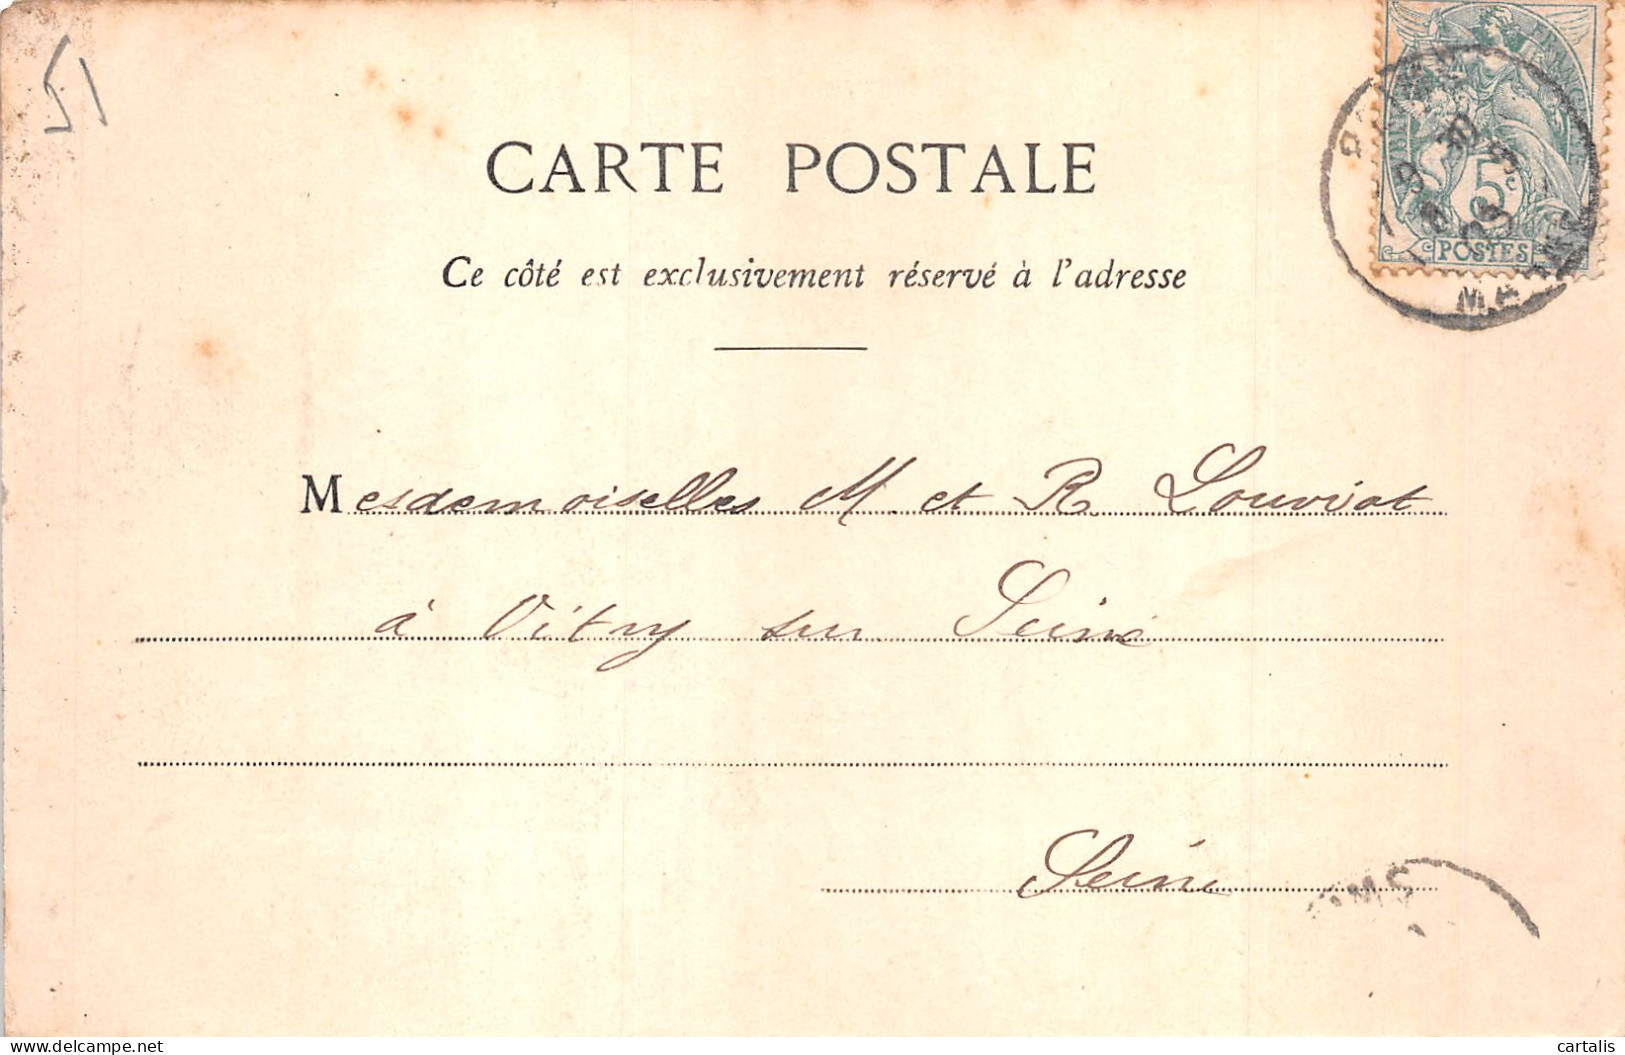 51
CARTE POSTALE
Ce côté est exclusivement réservé à l'adresse
5c
POSTES
MARNE
Mesdemoiselles M. et R. Louviot
à Vitry sur Seine
Seine
IMS
cartalis